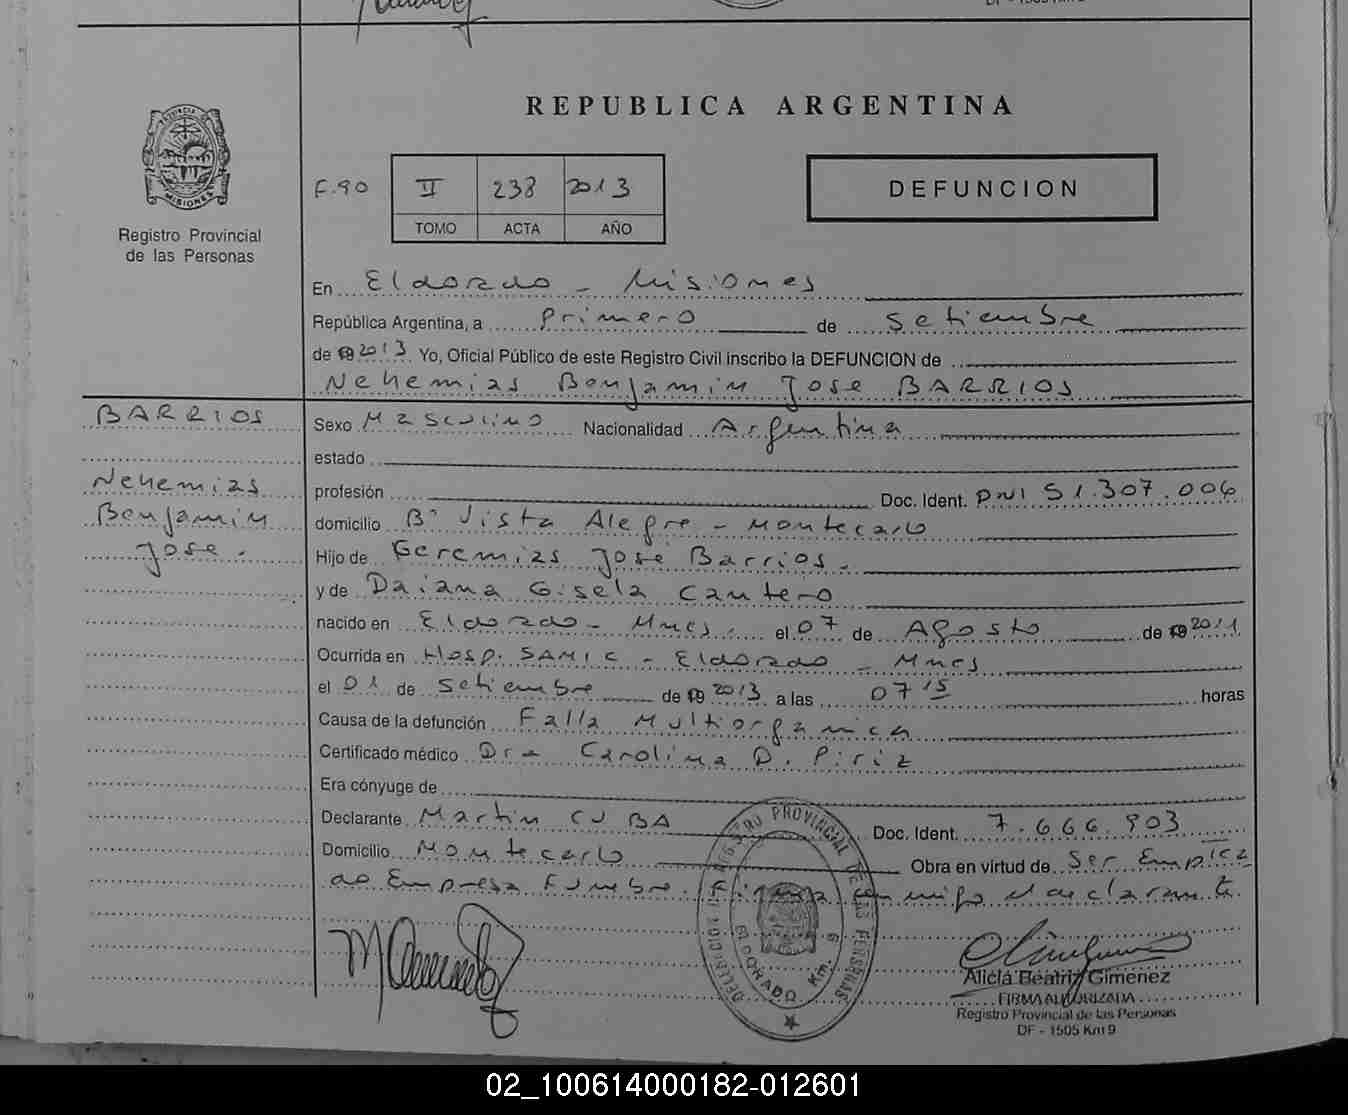 REPUBLICA ARGENTINA
PROVINCIA DE MISIONES
Registro Provincial
de las Personas
F.90 II 238 2013
TOMO ACTA AÑO
DEFUNCION
En Eldorado - Misiones
República Argentina, a primero de Setiembre
de 2013 Yo, Oficial Público de este Registro Civil inscribo la DEFUNCION de
Nehemias Benjamin Jose BARRIOS
BARRIOS
Nehemias
Benjamin
Jose.
Sexo Masculino Nacionalidad Argentina
estado
profesión Doc. Ident. DNI 51.307.006
domicilio Bº Vista Alegre - Montecarlo
Hijo de Geremias Jose Barrios.
y de Daiana Gisela Cantero
nacido en Eldorado - Mnes. el 07 de Agosto de 2011
Ocurrida en Hosp. SAMIC - Eldorado - Mnes
el 01 de Setiembre de 2013 a las 07 15 horas
Causa de la defunción Falla Multiorganica
Certificado médico Dra Carolina D. Piriz
Era cónyuge de
Declarante Martin CUBA Doc. Ident. 7.666.903
Domicilio Montecarlo Obra en virtud de Ser Emplea
do Empresa Funebre. Firma conmigo el declarante
DELEGACION REGISTRO PROVINCIAL DE LAS PERSONAS
ELDORADO Km. 9
Alicia Beatriz Gimenez
FIRMA AUTORIZADA
Registro Provincial de las Personas
DF - 1505 Km 9
02_100614000182-012601